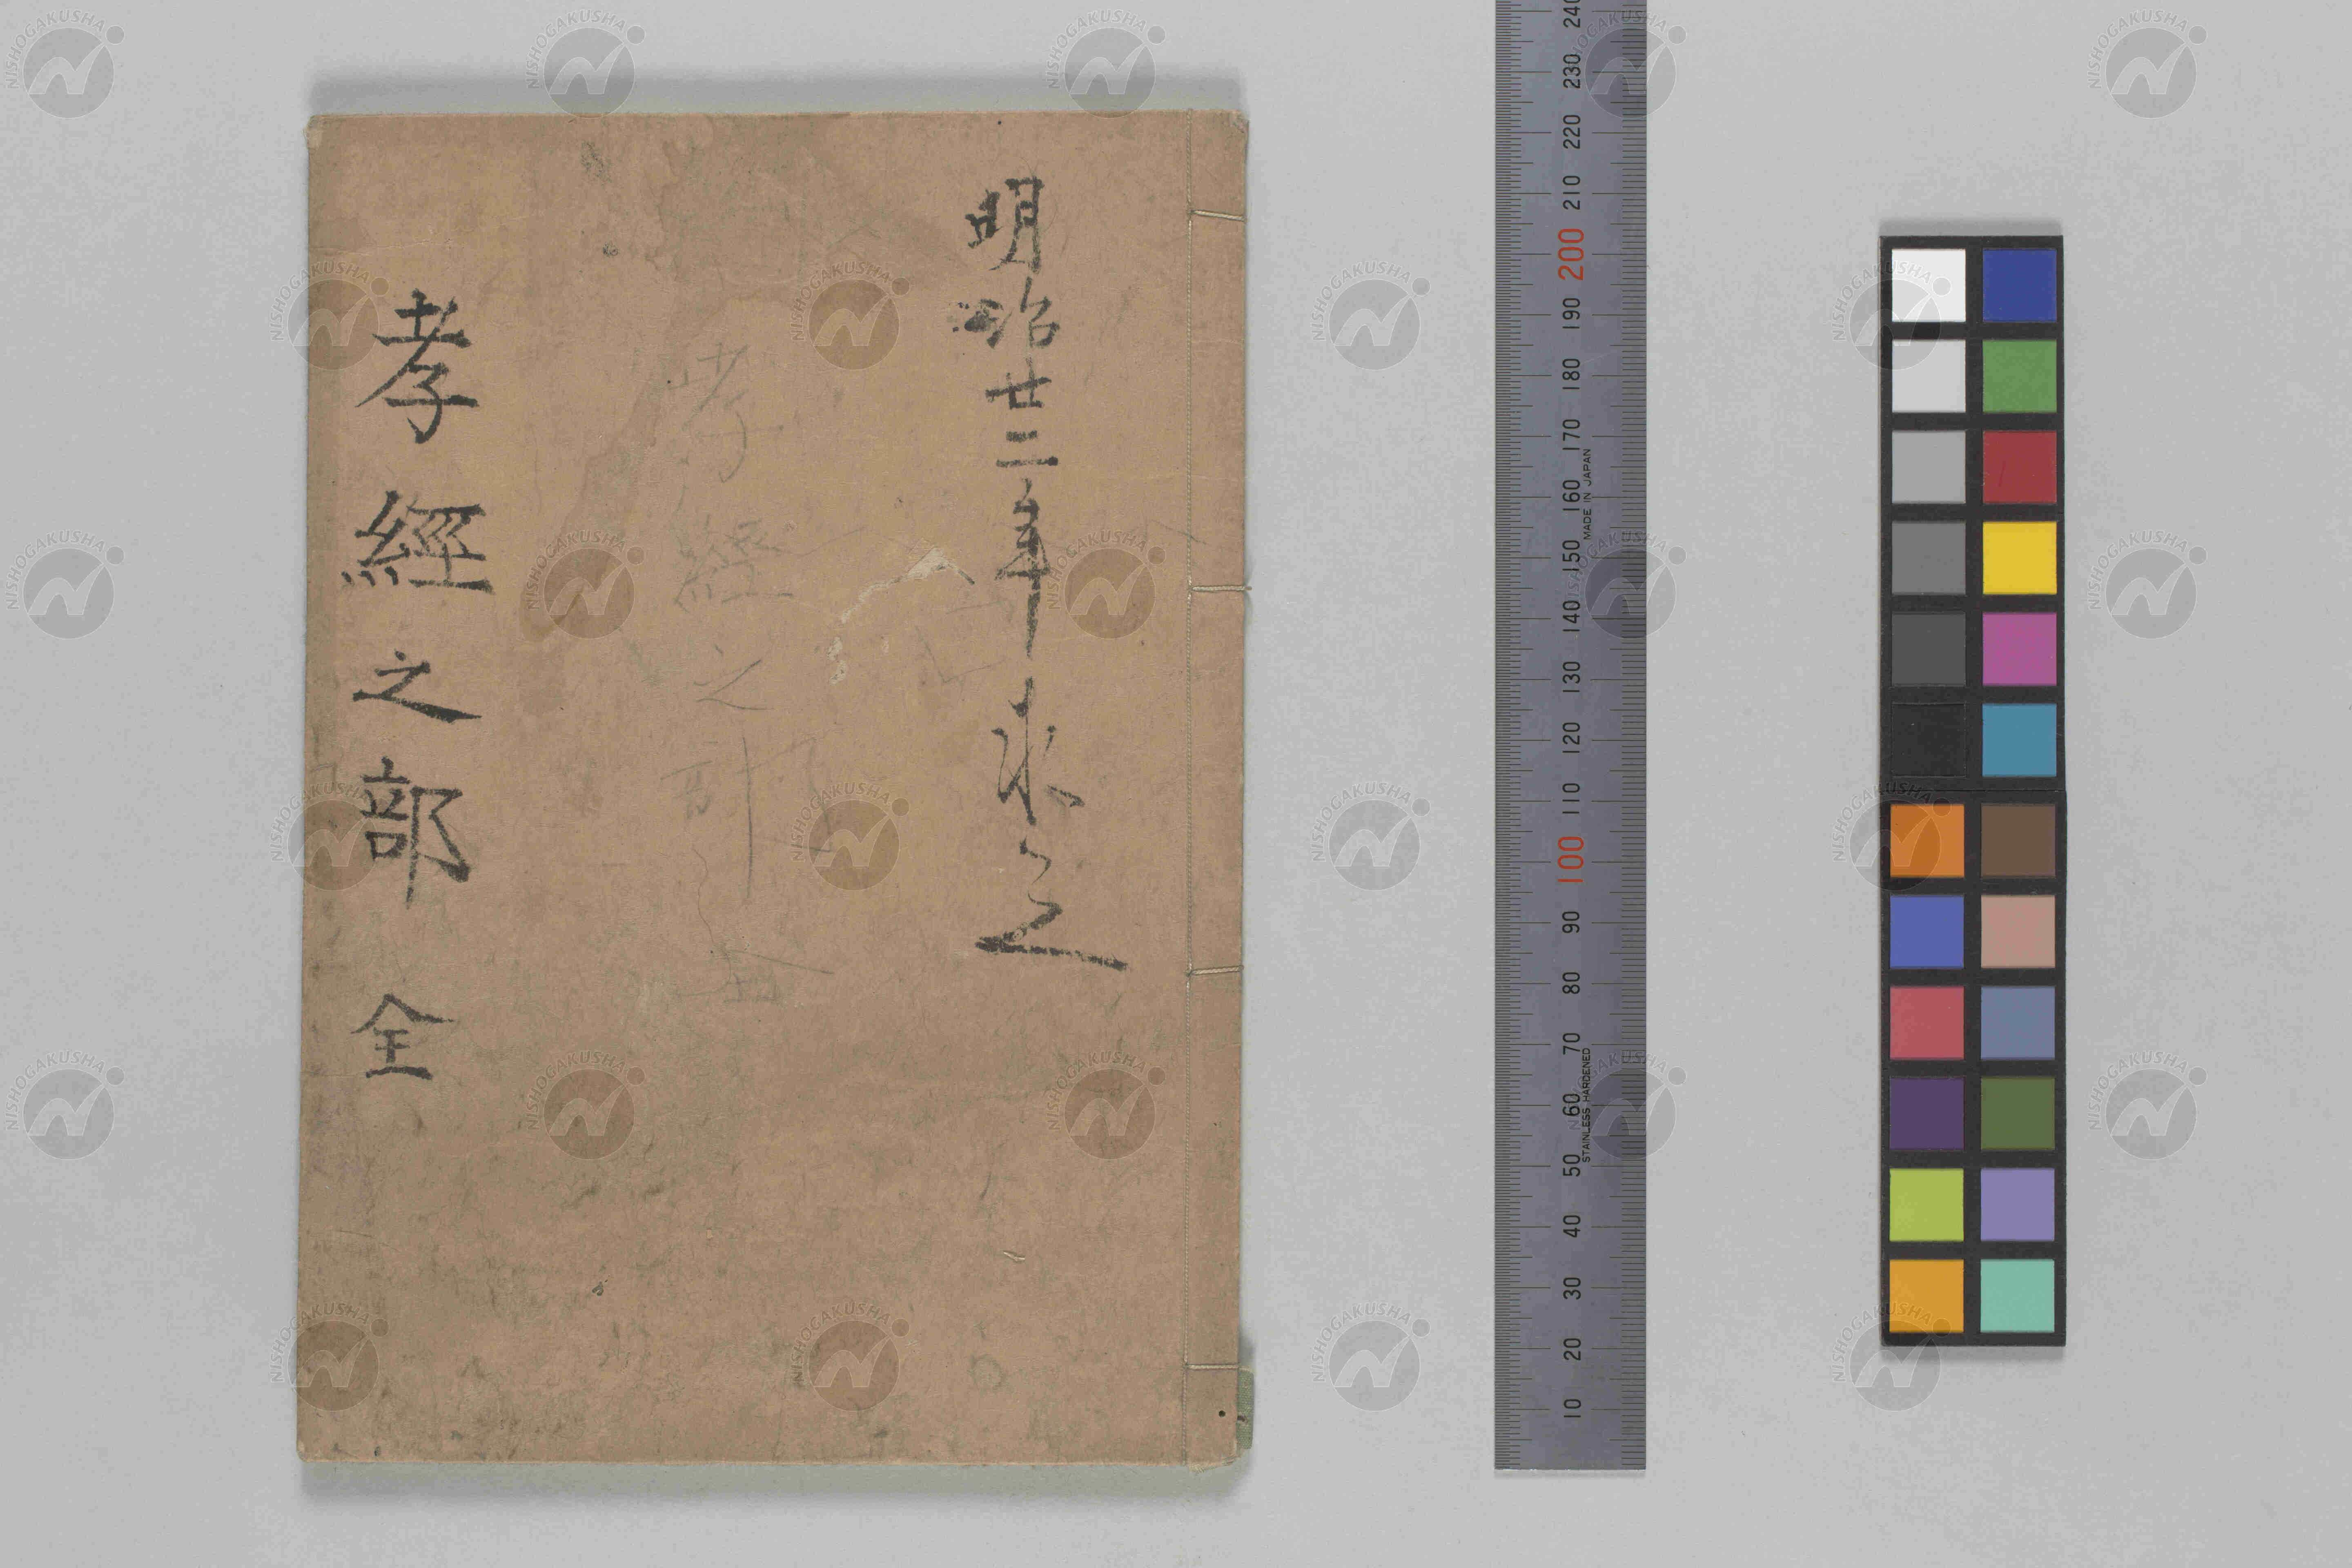 明治廿二年求之
孝經之
孝經之部 全
240
230
220
210
200
190
180
170
160
150
140
130
120
110
100
90
80
70
60
50
40
30
20
10
MADE IN JAPAN
STAINLESS HARDENED
NISHOGAKUSHA